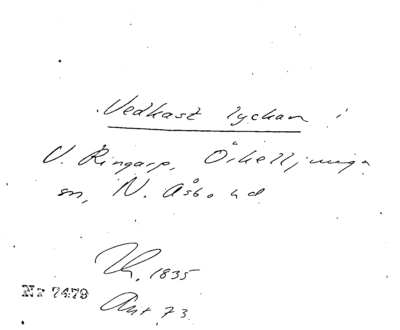 Vedkast lyckan i
V. Ringarp, Örkelljunga
sn, N. Åsbo hd
Th. 1835
Nr 7479
Ant 73